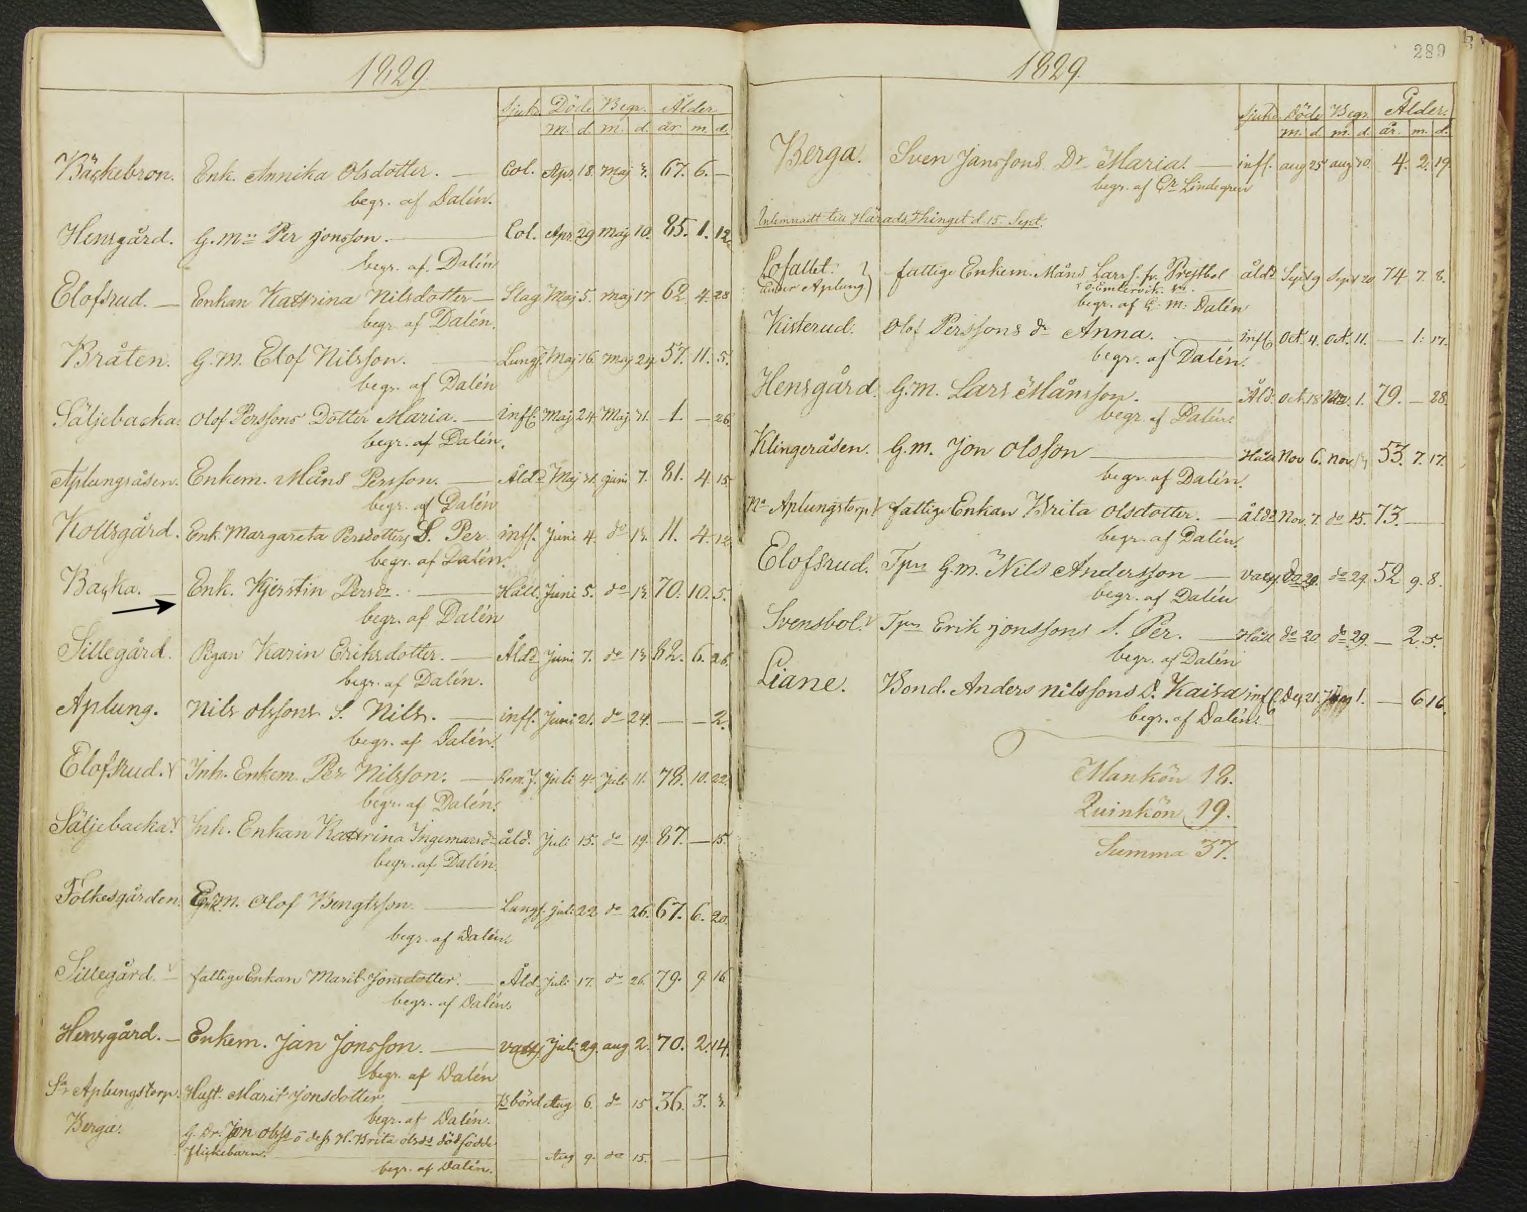 1829.
Sjukd. Döde Begr. Ålder
m. d. m. d. år. m. d.
Bäckebron. Enk. Annika Olsdotter. — Col. Apr. 18. Maj 3. 67. 6. —
begr. af Dalén.
Hensgård. G.m. Per Jonsson. — Col. Apr. 29 Maj 10. 85. 1. 12.
begr. af Dalén
Elofsrud. — Enkan Kattrina Nilsdotter — Slag Maj 5. Maj 17 62. 4. 28
begr. af Dalén.
Bråten. G.M. Elof Nilsson. — Lungs. Maj 16. Maj 24. 57. 11. 5.
begr. af Dalén
Säljebacka. Olof Perssons Dotter Maria. — inff. Maj 24. Maj 31. 1. — 26.
begr. af Dalén.
Aplungsåsen. Enkem. Måns Persson. — Åldd. Maj 31. Juni 7. 81. 4. 15.
begr. af Dalén
Kollsgård. Enk. Margareta Persdotters S. Per inff. Juni 4. do 13. 11. 4. 12.
begr. af Dalén.
Backa. — Enk. Kjerstin Persdr. — Håll. Juni 5. do 13. 70. 10. 5.
begr. af Dalén
Sillegård. Pigan Karin Eriksdotter. — Åldd. Juni 7. do 13. 82. 6. 26.
begr. af Dalén.
Aplung. Nils Olssons S. Nils. — inff. Juni 21. do 24. — — 2.
begr. af Dalén.
Elofsrud. Inh. Enkem. Per Nilsson. — Juli 4. Juli 11. 78. 10. 22.
begr. af Dalén.
Säljebacka. Inh. Enkan Kattrina Ingemarsd. åld. Juli 15. do 19. 87. — 15.
begr. af Dalén.
Folkesgården. Olof Bengtsson. — Lungs. Juli 22 do 26. 67. 6. 20.
begr. af Dalén.
Sillegård. — fattige Enkan Marit Jonsdotter. — Åld. Juli 17. do 26. 79. 9 16
begr. af Dalén.
Hensgård. — Enkem. Jan Jonsson. — Juli 29. aug 2. 70. 2. 14.
begr. af Dalén
Sr Aplungstorp. Hust. Marit Jonsdotter — Aug 6. do 15 36. 3. 3.
begr. af Dalén.
Berga. G. Dr. Jon Olss. o dess H. Brita Olsdr dödfödde
flickebarn. — Aug 9. do 15. — —
begr. af Dalén.
289
1829.
Sjukd. Döde Begr. Ålder.
m. d. m. d. år. m. d.
Berga. Sven Janssons Dr Maria. — inff. aug 25 aug 30. 4. 2. 19.
begr. af Lindegren
Inlemnadt till Häradsthinget d. 15. Sept.
Lofallet. fattige Enkem. Måns Lars S. fr. Prestbol åldd Sept 9 Sept 20 74 7. 8.
under Aplung
begr. af C. M. Dalén
Kisterud. Olof Perssons dr Anna. — inff. Oct. 4. Oct. 11. — 1. 17.
begr. af Dalén.
Hensgård. G.m. Lars Månsson. — Åld. Oct. 18 Nov. 1. 79. — 28.
begr. af Dalén.
Klingeråsen. G.m. Jon Olsson — Håll Nov 6. Nov 53. 7. 17.
begr. af Dalén.
Nr Aplungstorp. fattige Enkan Brita Olsdotter. — åldd Nov. 7. do 15. 73. —
begr. af Dalén.
Elofsrud. Tpn G.m. Nils Andersson — do 29. 52 9. 8.
begr. af Dalén
Svensbol. Tpn Erik Jonssons S. Per. — Håll do 20 do 29. — 2. 5.
begr. af Dalén
Liane. Bond. Anders Nilssons D. Kaisa inff. Dec. 21. 1. — 6 16.
begr. af Dalén.
Mankön 18.
Quinkön 19.
Summa 37.